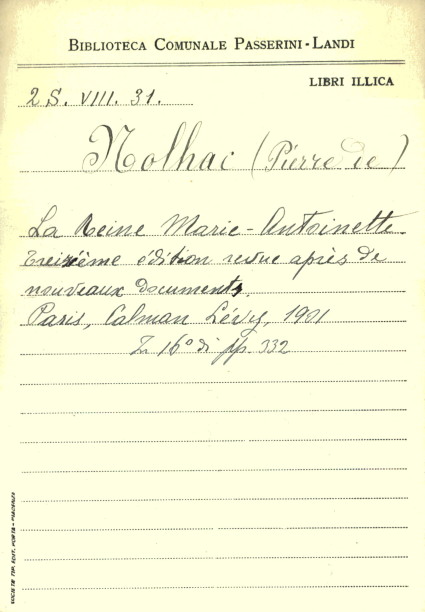 BIBLIOTECA COMUNALE PASSERINI-LANDI
LIBRI ILLICA
2 S. VIII. 31.
Nolhac (Pierre de)
La Reine Marie-Antoinette.
Treizième édition revue après de
nouveaux documents,
Paris, Calman Lévy, 1901
16° di pp. 332
SOCIETÀ TIP. EDIT. PORTA - PIACENZA